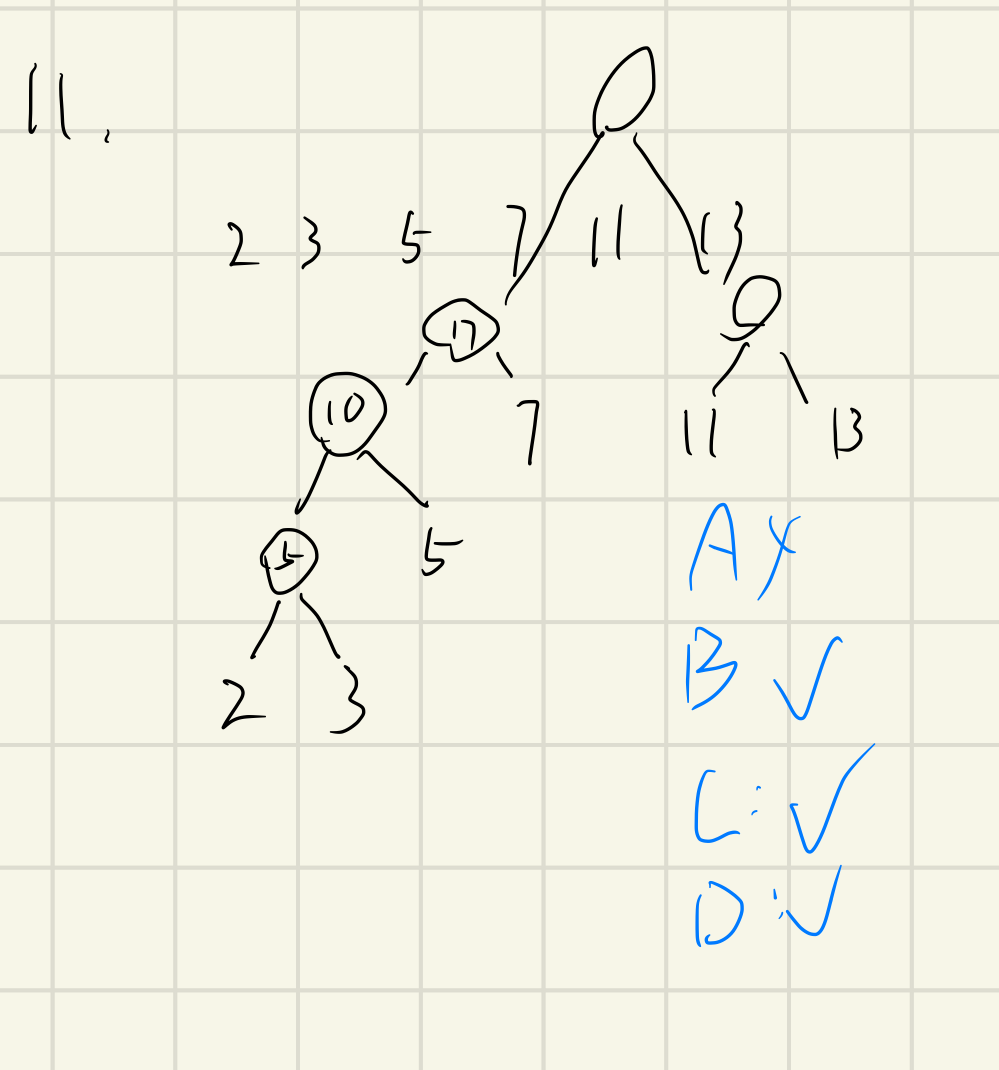 11.
2 3 5 7 11 13
17
10
7 11 13
5 5
2 3
A ×
B ✓
C: ✓
D: ✓